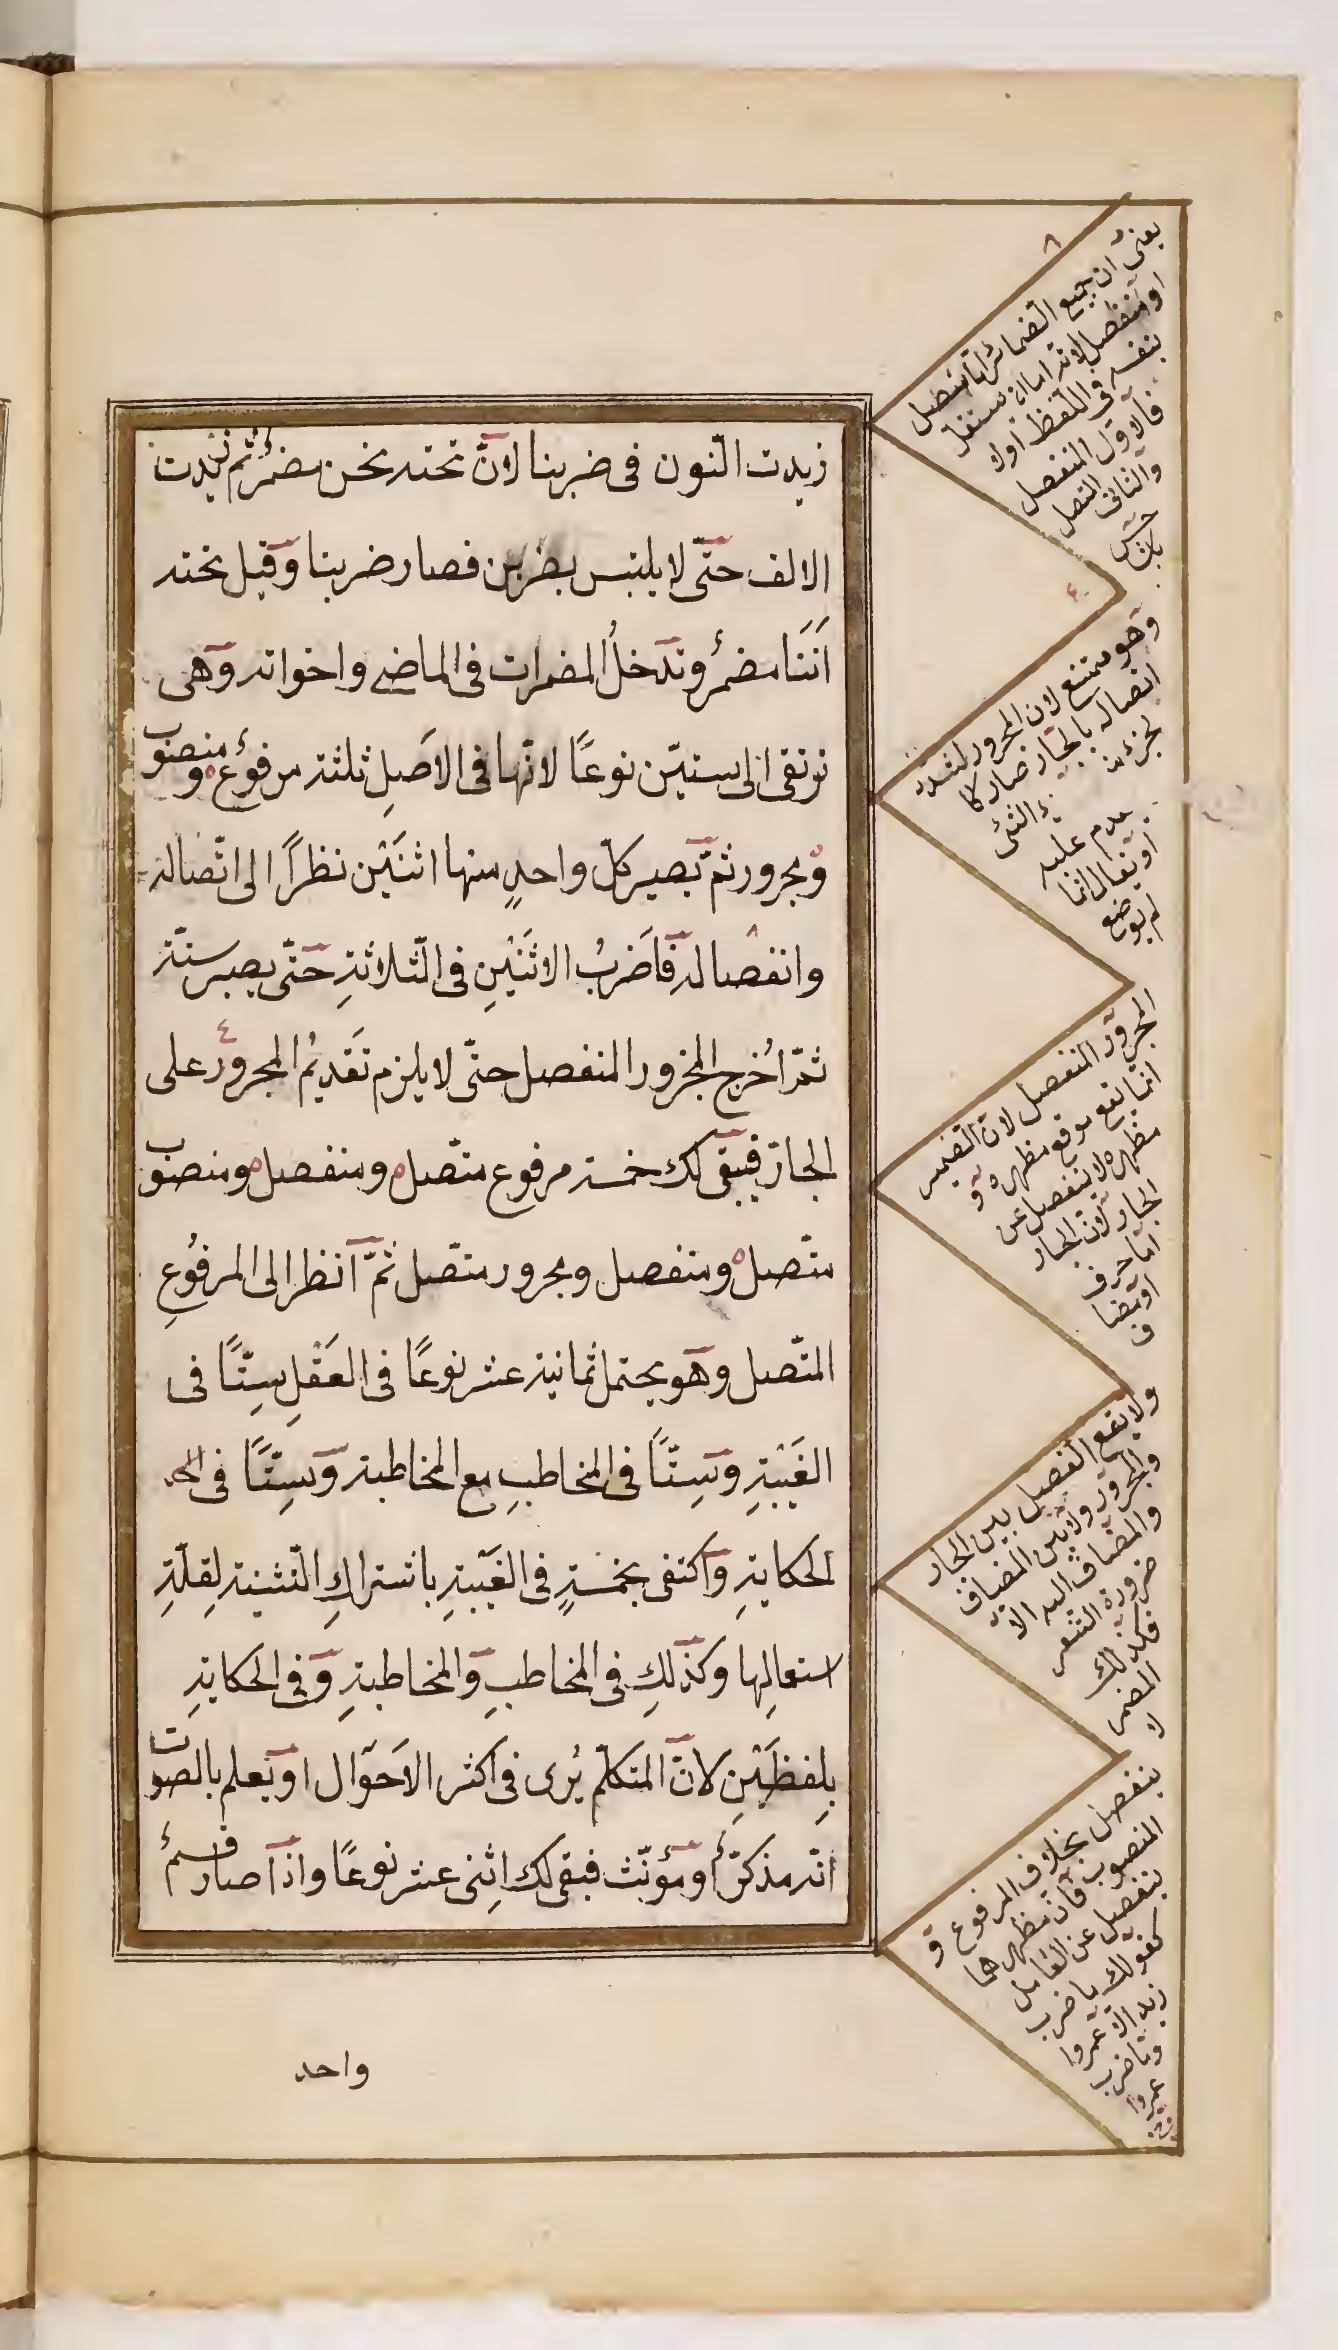 زيدت النّون فى ضربنا لانّ تحته نحن مضمرٌ ثم زيدت
الالف حتّى لا يلتبس بضربن فصار ضربنا وقيل تحته
اَنَنَا مضمرٌ وتدخلُ المضمرات فى الماضى واخواته وهى
ترتقى الى ستيّن نوعًا لانّها فى الاَصلِ ثلثة مرفوعٌ و منصوب
ومجرور ثمّ يصير كلّ واحدٍ منها اثنَيْن نظراً الى اتّصاله
وانفصاله فاَضربُ الاثنَيْنِ فى الثّلاثةِ حَتّى يصير ستّة
ثمّ اُخرج المجرور المنفصل حتّى لا يلزم تَقديمُ المجرور على
الجارّ فيبقى لك خمسة مرفوع متّصل ومنفصل ومنصوب
متّصل ومنفصل ومجرور متّصل ثمّ اَنظر الى المرفُوعِ
المتّصل وهو يحتمل ثمانية عشر نوعًا فى العَقْلِ سِتّاً فى
الغَيْبَةِ وسِتّاً فى المخاطبِ مع المخاطبة وسِتّاً فى
الحكايةِ واكتفى بخمسةٍ فى الغَيْبةِ باشتراكِ التّثنية لِقلّةِ
استعمالِها وكذلِكِ فى المخاطبِ والمخاطبةِ وفى الحكايةِ
بِلفظَيْنِ لانّ المتكلّم يُرى فى اكثر الاَحوَال او يعلم بالصوت
انّه مذكرٌ او مؤنّث فبقى لك اِثنى عشر نوعًا واذا صار قسمُ
واحد
٨
يعنى ان جميع الضمائر امّا متصل
او منفصل لانه اما ان يستقل
بنفسه فى اللفظ اولا
فالاول المنفصل
والثانى المتصل
٤
وهو ممتنع لان المجرور لشدة
اتصاله بالجار صار كا
لجزء منه
او يقال انما
لم يوضع
المجرور المنفصل لان الضمير
انما يقع موقع مظهره و
مظهره لا ينفصل عن
الجار لان الجار
اما حرف
او مضا
ف
ولا يقع الفصل بين الجار
والمجرور ولا بين المضاف
والمضاف اليه الا
ضرورة الشعر
فكذلك
المضمر
لا
ينفصل بخلاف المرفوع و
المنصوب فان مظهرهما
ينفصل عن العامل
كقولك ما ضرب
زيد الا عمروا
وما ضرب
عمروا